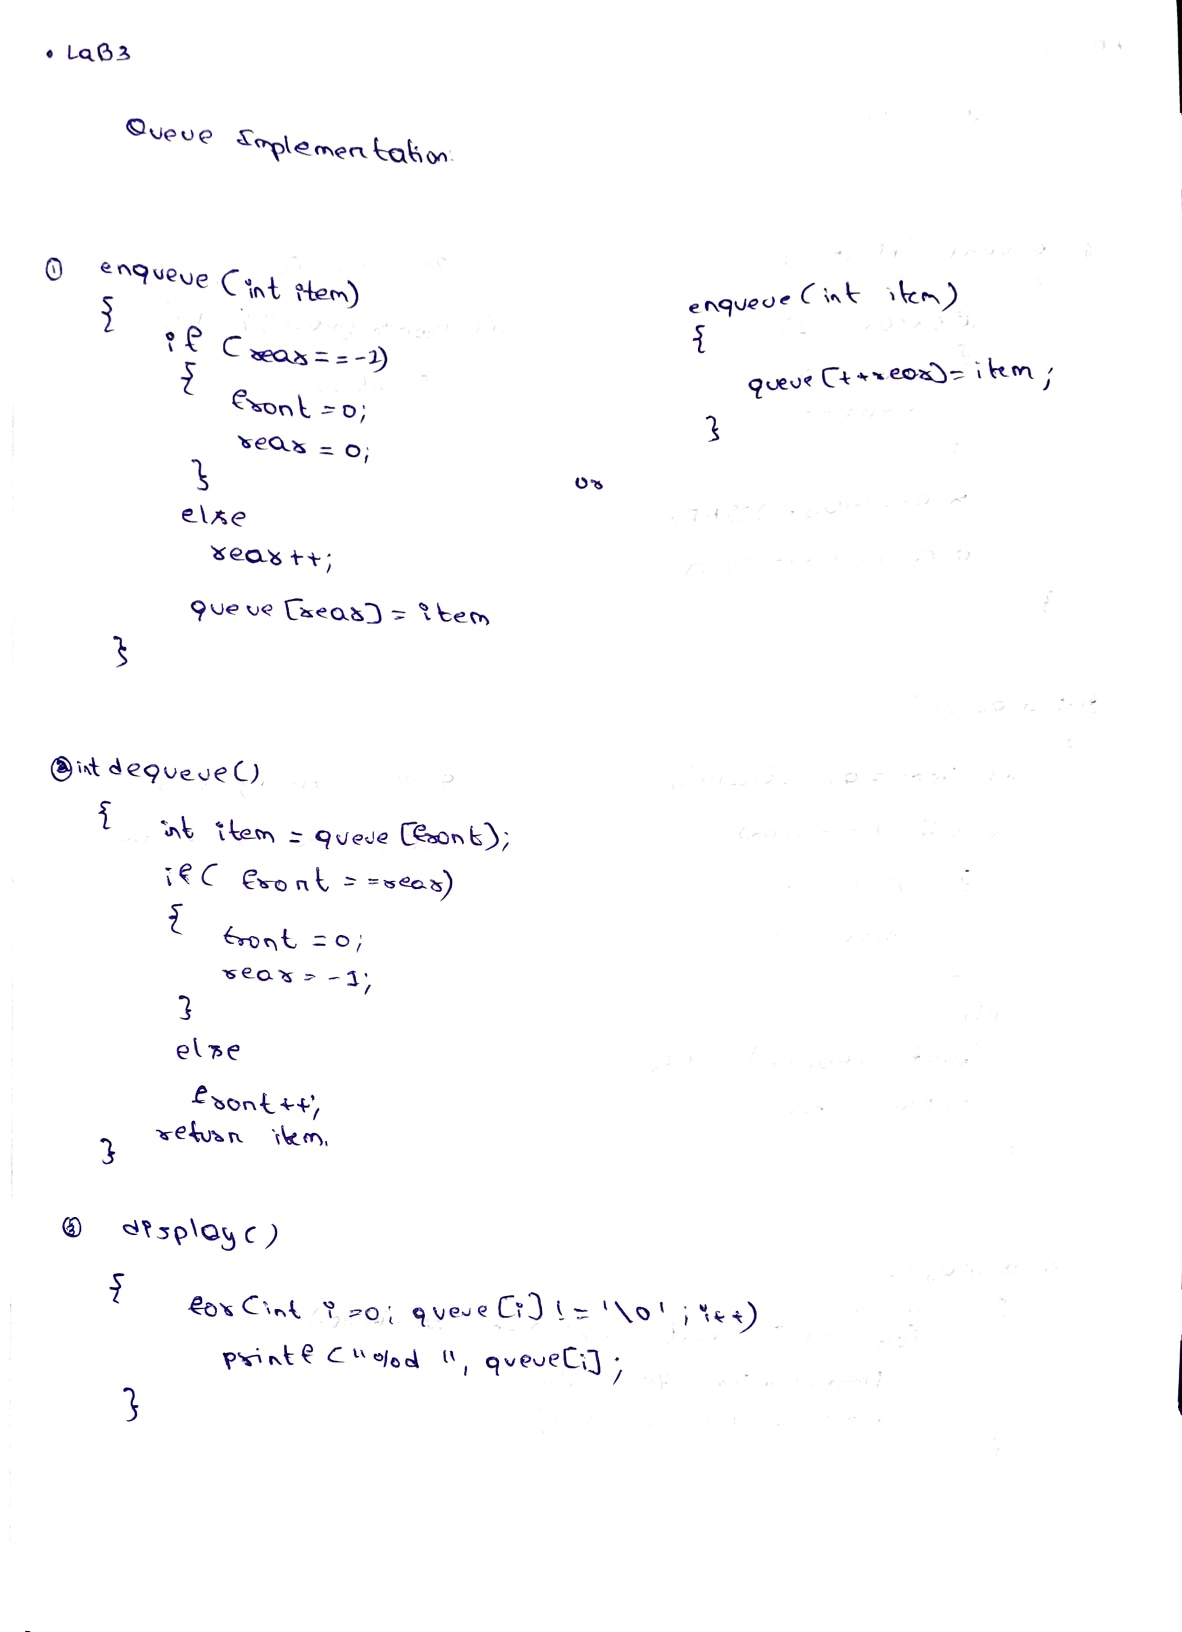 • LAB3
Queue Implementation.
① enqueue (int item)
{
if (rear==-1)
{
front =0;
rear = 0;
}
else
rear++;
queue [rear] = item
}
or
enqueue (int item)
{
queue [++rear] = item;
}
② int dequeue()
{
int item = queue [front);
if( front ==rear)
{
front =0;
rear = -1;
}
else
front++;
return item.
}
③ display()
{
for (int i =0; queue [i] != '\0' ; i++)
printf ("%d ", queue[i];
}